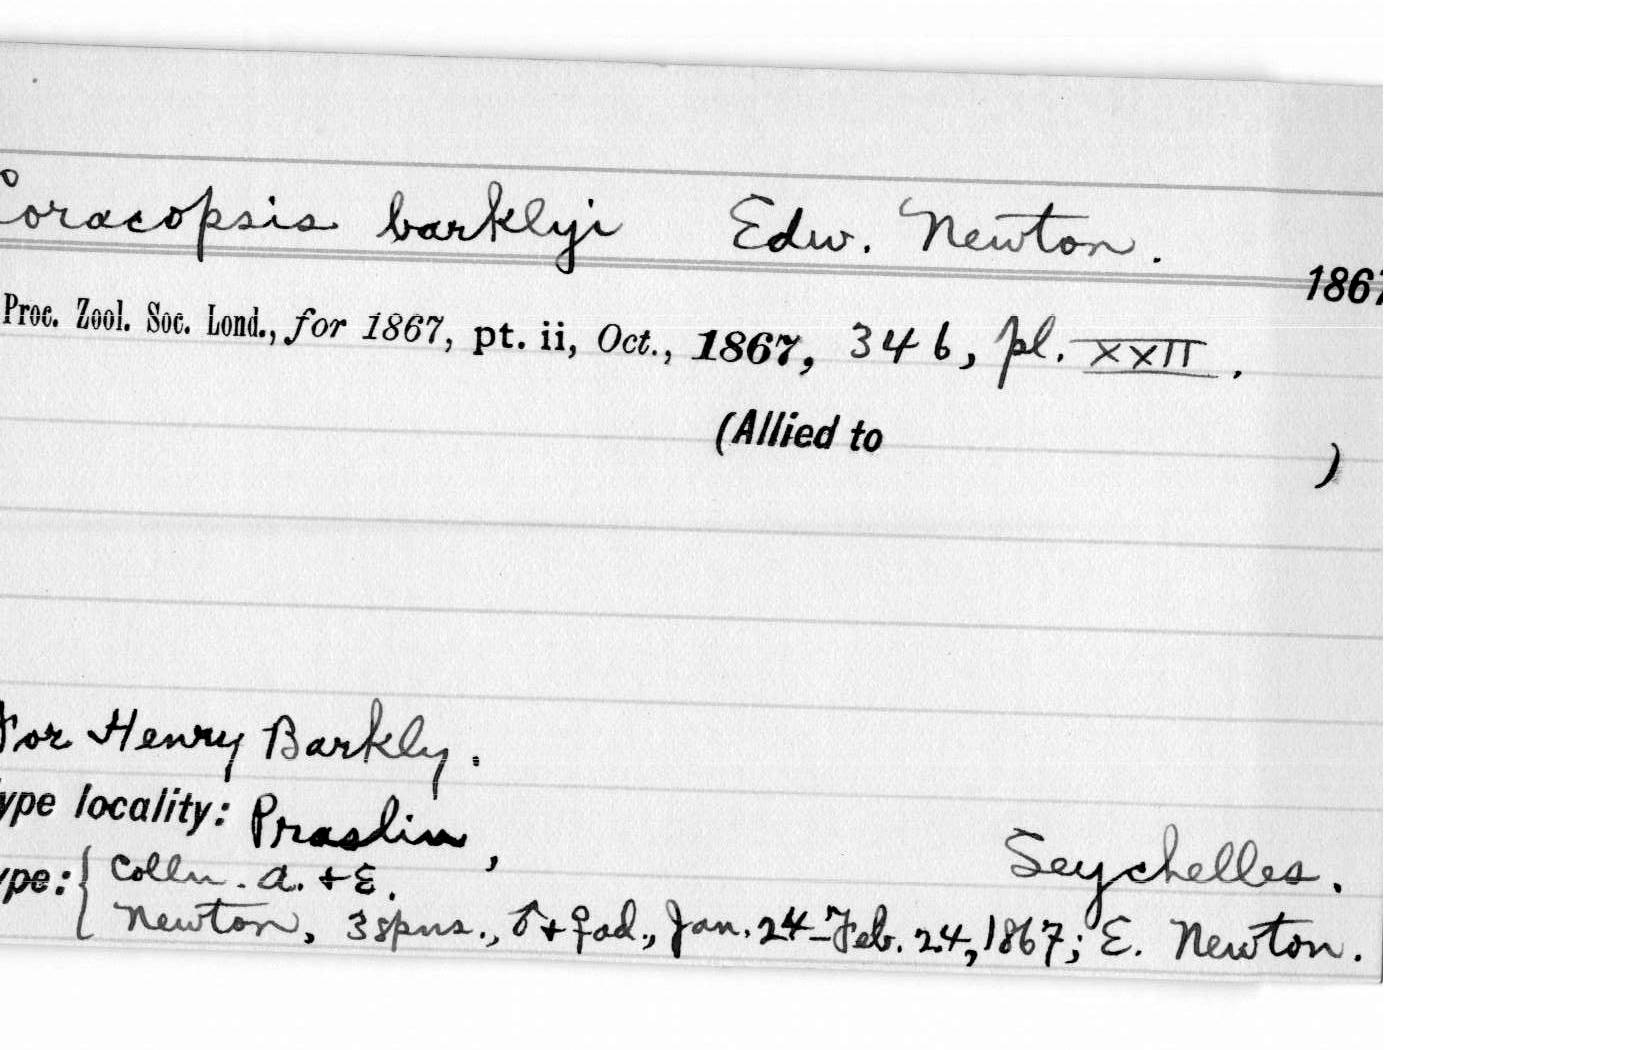 Coracopsis barklyi Edw. Newton.
1867
Proc. Zool. Soc. Lond., for 1867, pt. ii, Oct., 1867, 346, pl. XXII.
(Allied to )
For Henry Barkly.
ype locality: Praslin, Seychelles.
ype: { Colln. A. + E.
Newton, 3 spns., ♂ + ♀ ad., Jan. 24-Feb. 24, 1867; E. Newton.